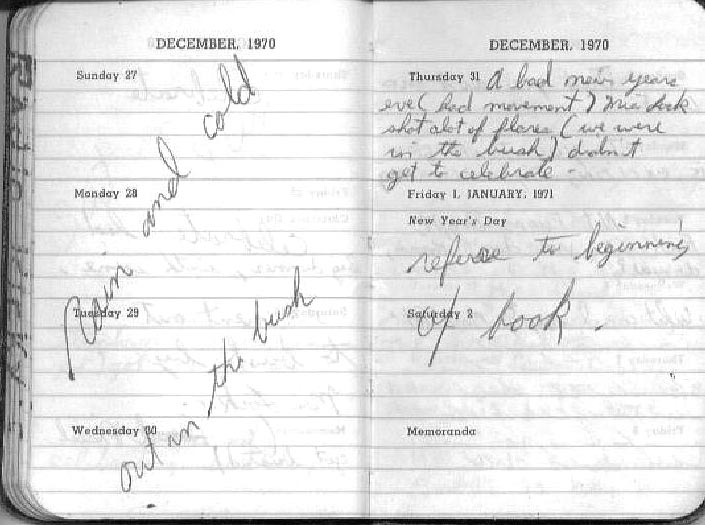 DECEMBER, 1970
Sunday 27
Rain and cold
Monday 28
Tuesday 29
out in the bush
Wednesday 30
DECEMBER, 1970
Thursday 31 A bad new years
eve (had movement)
shot alot of flares (we were
in the bush) didn't
get to celebrate -
Friday 1, JANUARY, 1971
New Year's Day
referse to beginning
Saturday 2 of book.
Memoranda